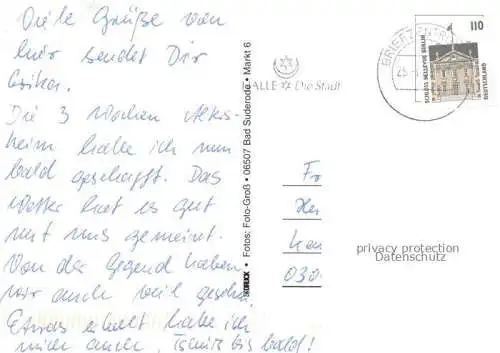 Viele Grüße von
hier sendet Dir
Erika.
Die 3 Wochen
heim habe ich nun
bald geschafft. Das
Wetter hat es gut
mit uns gemeint.
Von der Gegend haben
wir auch viel gesehen.
Etwas erholt habe ich
mich auch. Tschüß bis bald!
• Fotos: Foto-Groß • 06507 Bad Suderode • Markt 6
ALLE Die Stadt
BRIEFZENTRUM
110
SCHLOSS BELLEVUE BERLIN
DEUTSCHLAND
Fr
030
privacy protection
Datenschutz